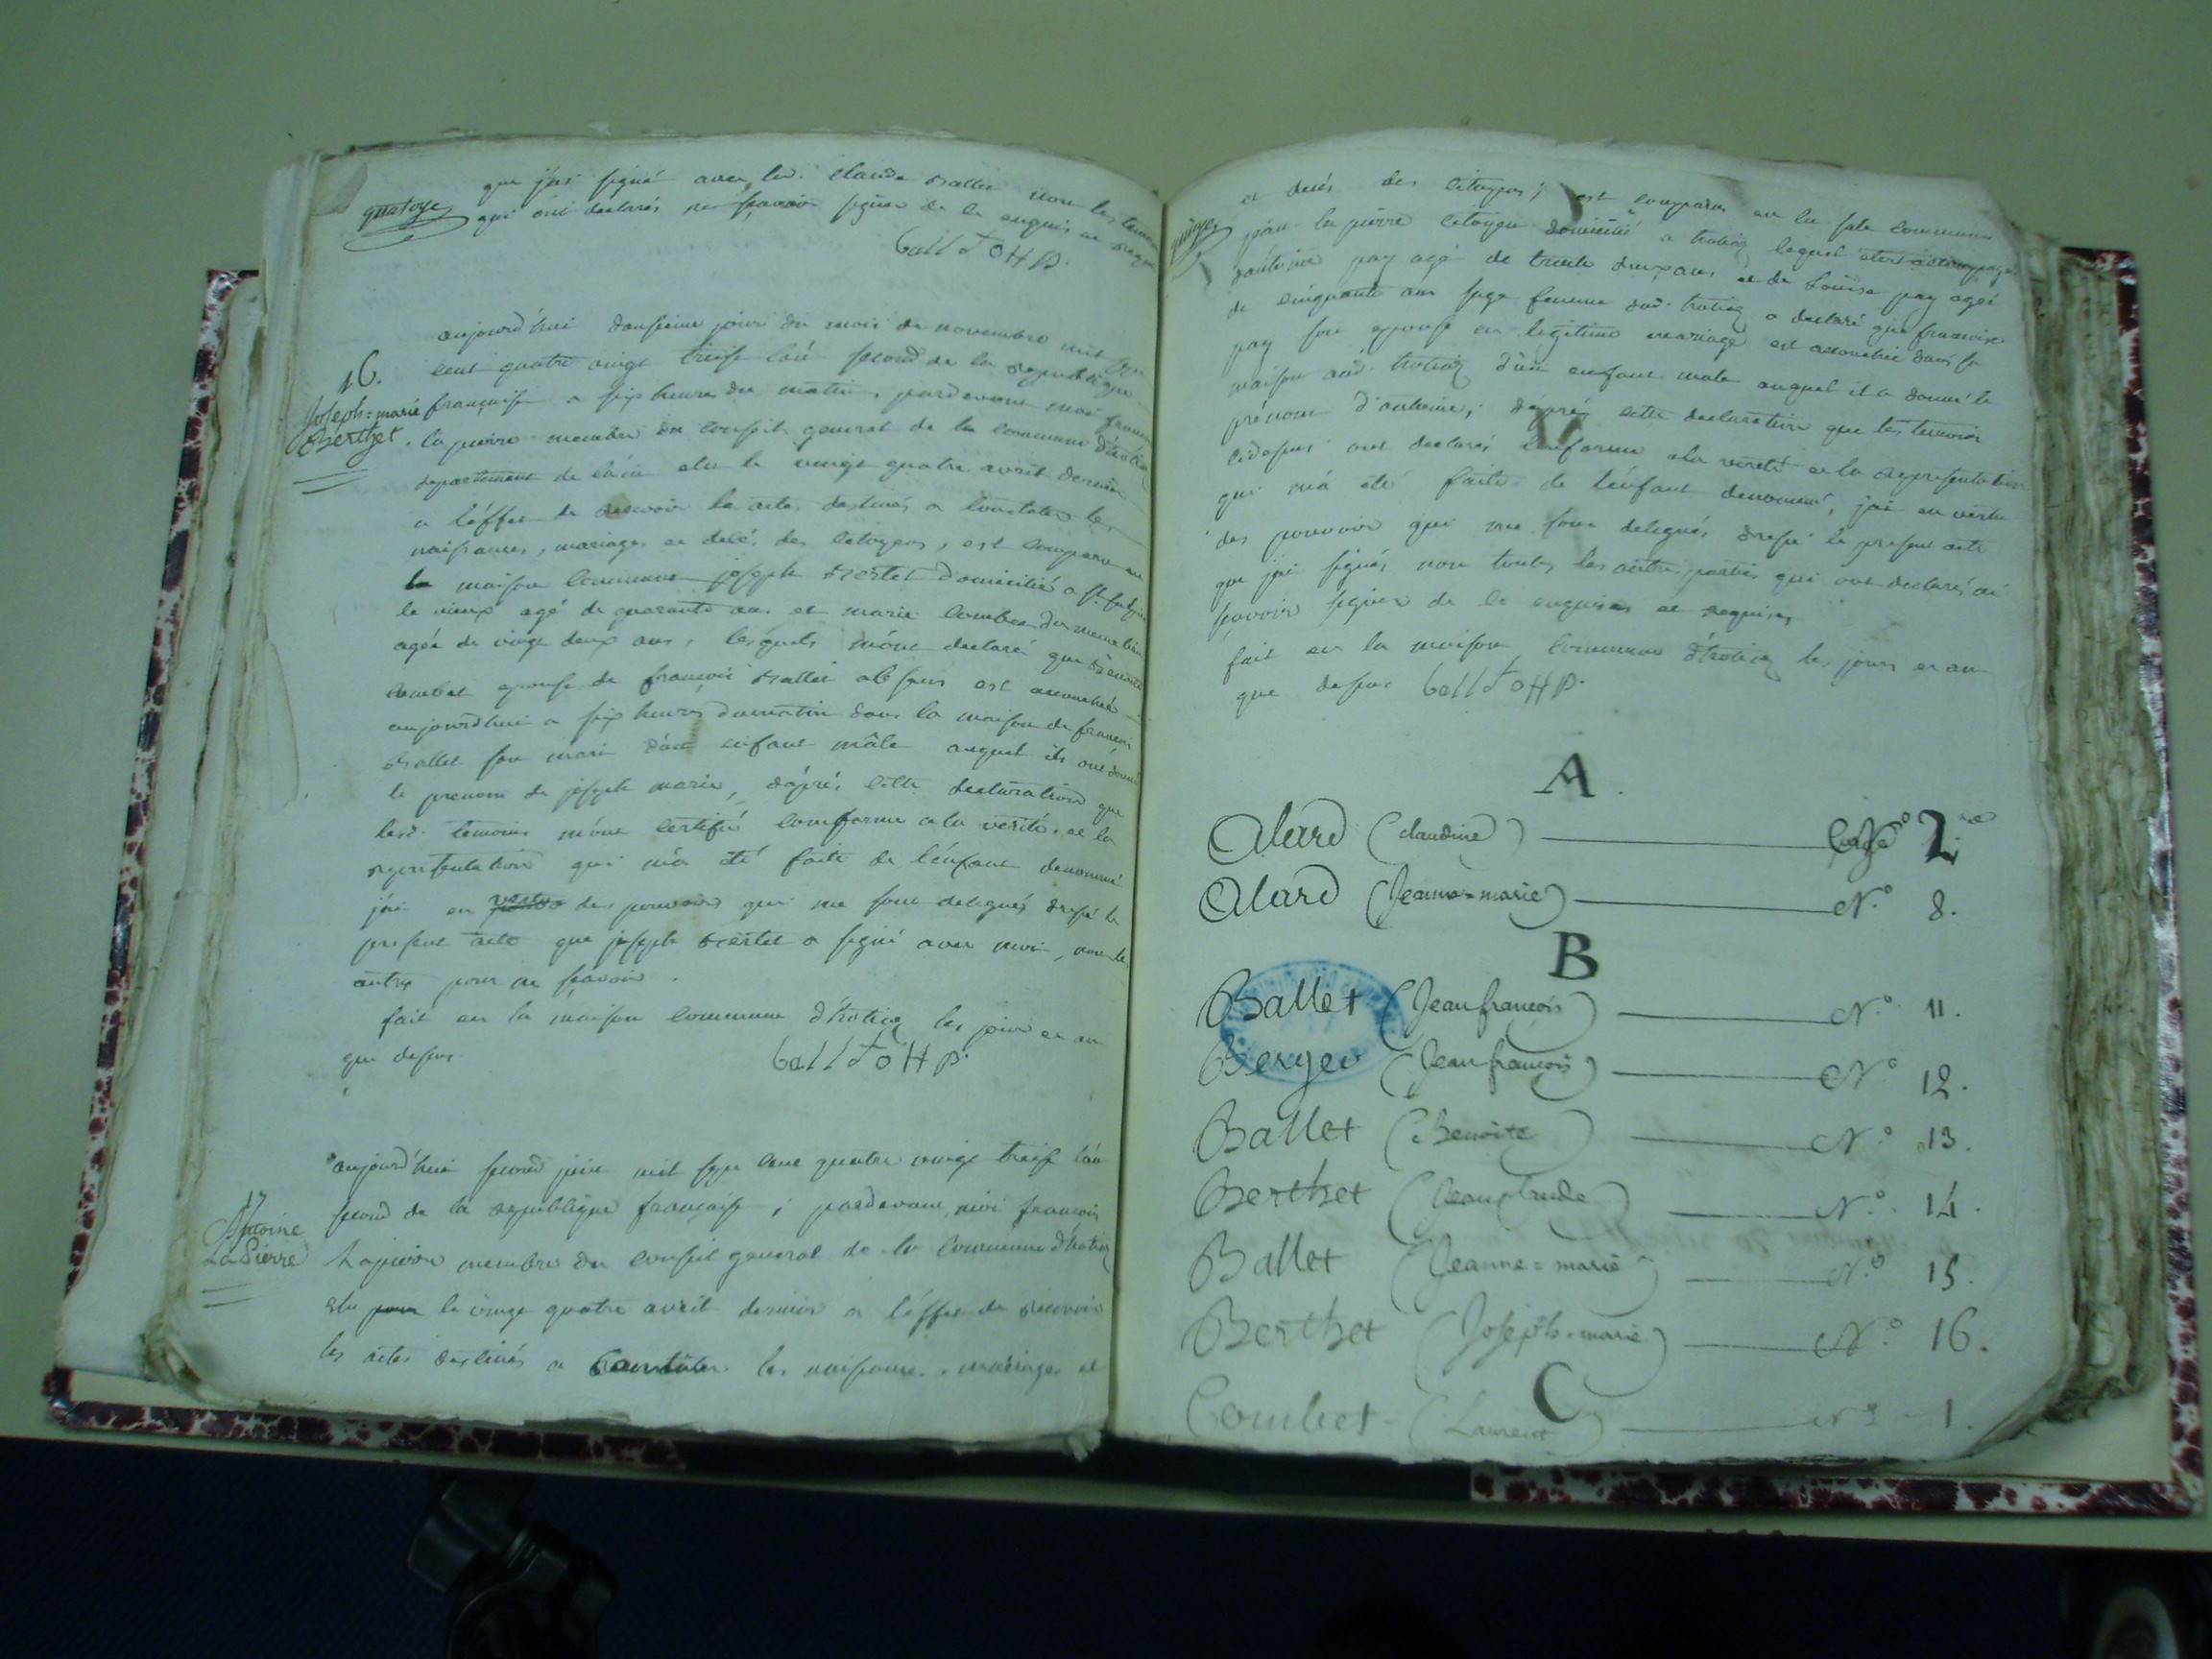 quatorze
que j'ai signé avec led. claude Ballet non les temoins
qui ont declarés ne sçavoir signer de le enquis et requis
16.
Joseph=marie
Berthet.
aujourd'hui douzieme jour du mois de novembre mil sept
cent quatre vingt treise l'an second de la republique
française a six heures du matin, pardevant moi francois
lapierre membre du conseil general de la commune
departement de l'ain elu le vingt quatre avril dernier
a l'éffet de recevoir les actes destinés a constater les
naissances, mariages et décé. des citoyens, est comparu en
la maison commune joseph Bertet domicilié a
le vieux agé de quarante ans et marie combet du meme lieu
agée de vingt deux ans, lesquels m'ont declaré que
combet epouse de françois Ballet est accouchée
aujourdhui a six heures du matin dans la maison de francois
Ballet son mari d'un enfant mâle auquel ils ont donné
le prenom de joseph marie, d'aprés cette declaration que
lesd. temoins m'ont certifié conforme a la verité, et la
representation qui m'a été faite de l'enfant denommé
j'ai en vertu des pouvoirs qui me sont delegués dressé le
present acte que joseph Bertet a signé avec moi, non les
autres pour ne sçavoir.
fait en la maison commune les jour et an
que dessus.
17
Antoine
LaPierre
aujourd'hui second jour mil sept cent quatre vingt treise l'an
second de la republique française; pardevant moi francois
Lapierre membre du conseil general de la commune
elu pour le vingt quatre avril dernier a l'éffet de recevoir
les actes destinés a constater les naissances, mariages et
quinze
et decés des citoyens; est comparu en la sale commune
jean lapierre citoyen domicilié a lequel
pay agé de trente deux ans et de Louise pay agée
de cinquante ans sage femme dud. a declaré que francoise
pay son epouse en legitime mariage est accouchée dans sa
maison aud. d'un enfant male auquel il a donné le
prenom d'antoine; d'aprés cette declaration que les temoins
cidessus ont declarés conforme a la verité et la representation
qui m'a été faite de l'enfant denommé, j'ai en vertu
des pouvoir qui me sont delegués dressé le present acte
que j'ai signés non toutes les autre parties qui ont declaré ne
sçavoir signer de le enquises et requises
fait en la maison commune les jours et an
que dessus
A.
Alard (claudine) N.º 2.
Alard (Jeanne=marie) N.º 8.
B
Ballet (Jean francois) N.º 11.
Berger (Jean françois) N.º 12.
Ballet (Benoite) N.º 13.
Berthet (Jean claude) N.º 14.
Ballet (Jeanne=marie) N.º 15.
Berthet (Joseph=marie) N.º 16.
C
Combet (Laurent) N.º 1.